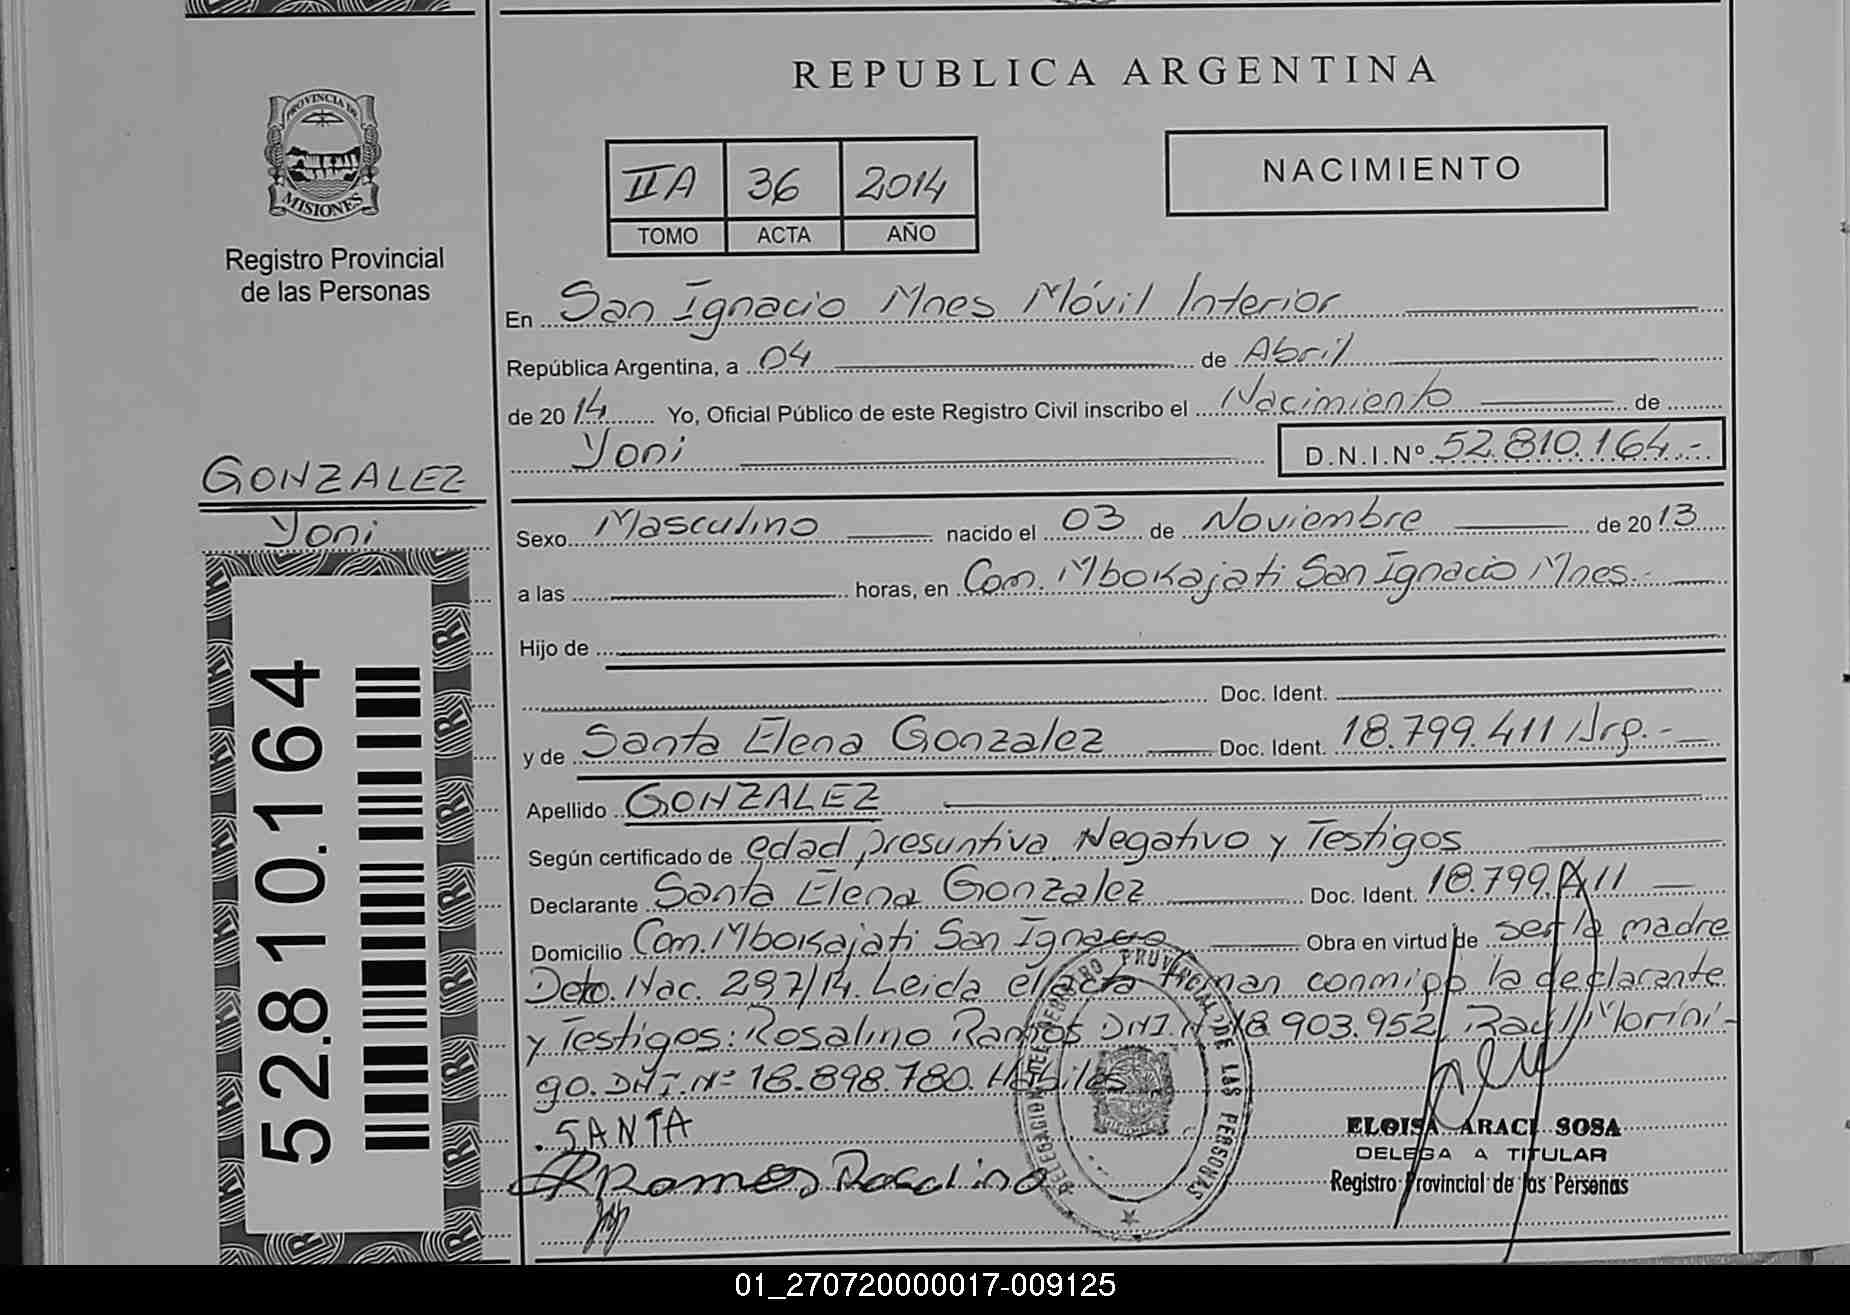 REPUBLICA ARGENTINA
PROVINCIA DE
MISIONES
Registro Provincial
de las Personas
IIA 36 2014
TOMO ACTA AÑO
NACIMIENTO
En San Ignacio Mnes Móvil Interior
República Argentina, a 04 de Abril
de 2014 Yo, Oficial Público de este Registro Civil inscribo el Nacimiento de
Yoni D.N.I.Nº 52.810.164.-
GONZALEZ
Yoni
52.810.164
Sexo Masculino nacido el 03 de Noviembre de 2013
a las horas, en Com. Mbokajati San Ignacio Mnes.-
Hijo de
Doc. Ident.
y de Santa Elena Gonzalez Doc. Ident. 18.799.411 Arg.-
Apellido GONZALEZ
Según certificado de edad presuntiva Negativo y Testigos
Declarante Santa Elena Gonzalez Doc. Ident. 18.799.411
Domicilio Com. Mbokajati San Ignacio Obra en virtud de ser la madre
Dcto. Nac. 297/14. Leida el acta firman conmigo la declarante
y Testigos: Rosalino Ramos DNI.Nº 18.903.952, Raúl Morini-
go. DNI.Nº 18.898.780. Hábiles
SANTA
Ramos Rosalino
DELEGACION DEL REGISTRO PROVINCIAL DE LAS PERSONAS
ELOISA ARACI SOSA
DELEGADA TITULAR
Registro Provincial de las Personas
01_270720000017-009125